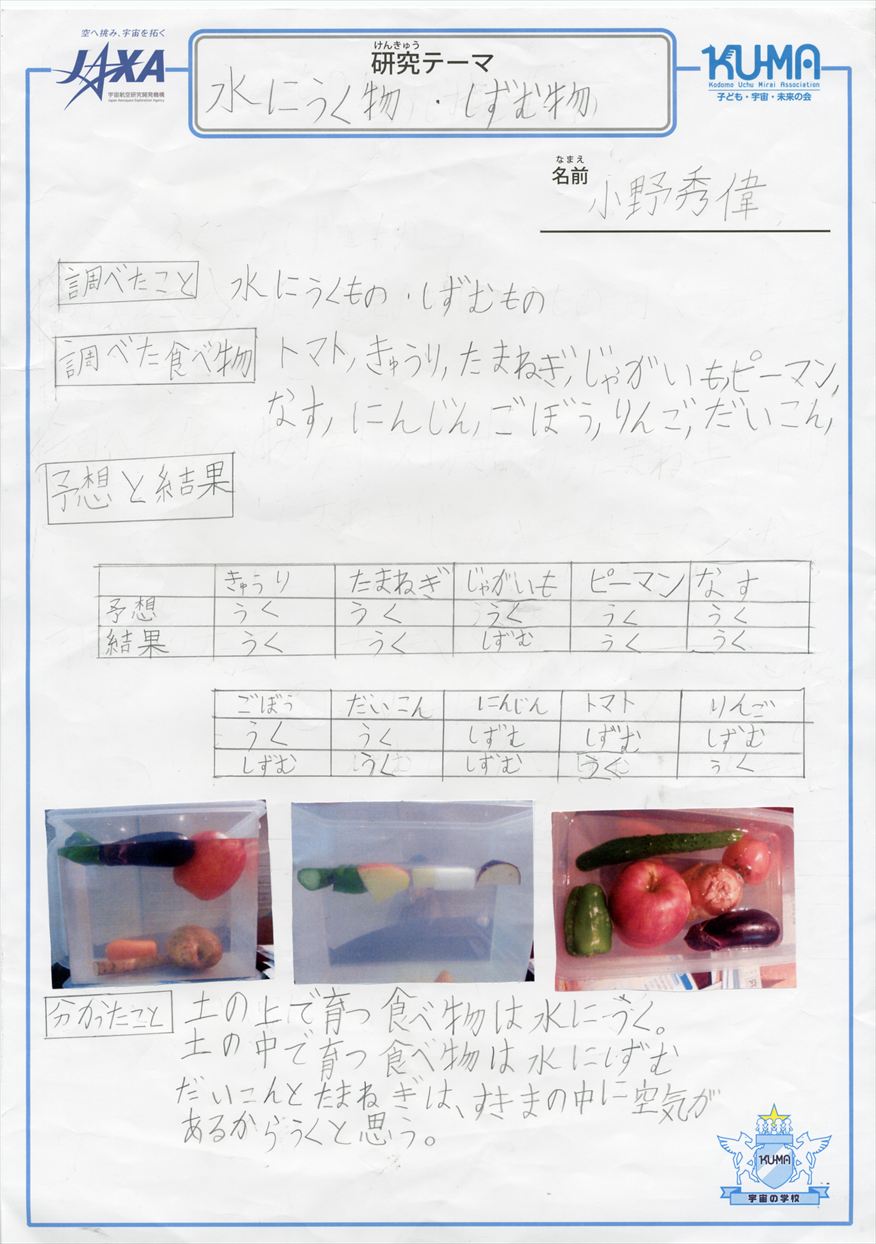 空へ挑み、宇宙を拓く
JAXA
宇宙航空研究開発機構
Japan Aerospace Exploration Agency
けんきゅう
研究テーマ
水にうく物・しずむ物
KU-MA
Kodomo Uchu Mirai Association
子ども・宇宙・未来の会
なまえ
名前 小野秀偉
調べたこと 水にうくもの・しずむもの
調べた食べ物 トマト,きゅうり,たまねぎ,じゃがいも,ピーマン,
なす,にんじん,ごぼう,りんご,だいこん,
予想と結果
きゅうり たまねぎ じゃがいも ピーマン なす
予想 うく うく うく うく うく
結果 うく うく しずむ うく うく
ごぼう だいこん にんじん トマト りんご
うく うく しずむ しずむ しずむ
しずむ うく しずむ うく うく
分かったこと 土の上で育つ食べ物は水にうく。
土の中で育つ食べ物は水にしずむ
だいこんとたまねぎは、すきまの中に空気が
あるからうくと思う。
KU-MA
宇宙の学校